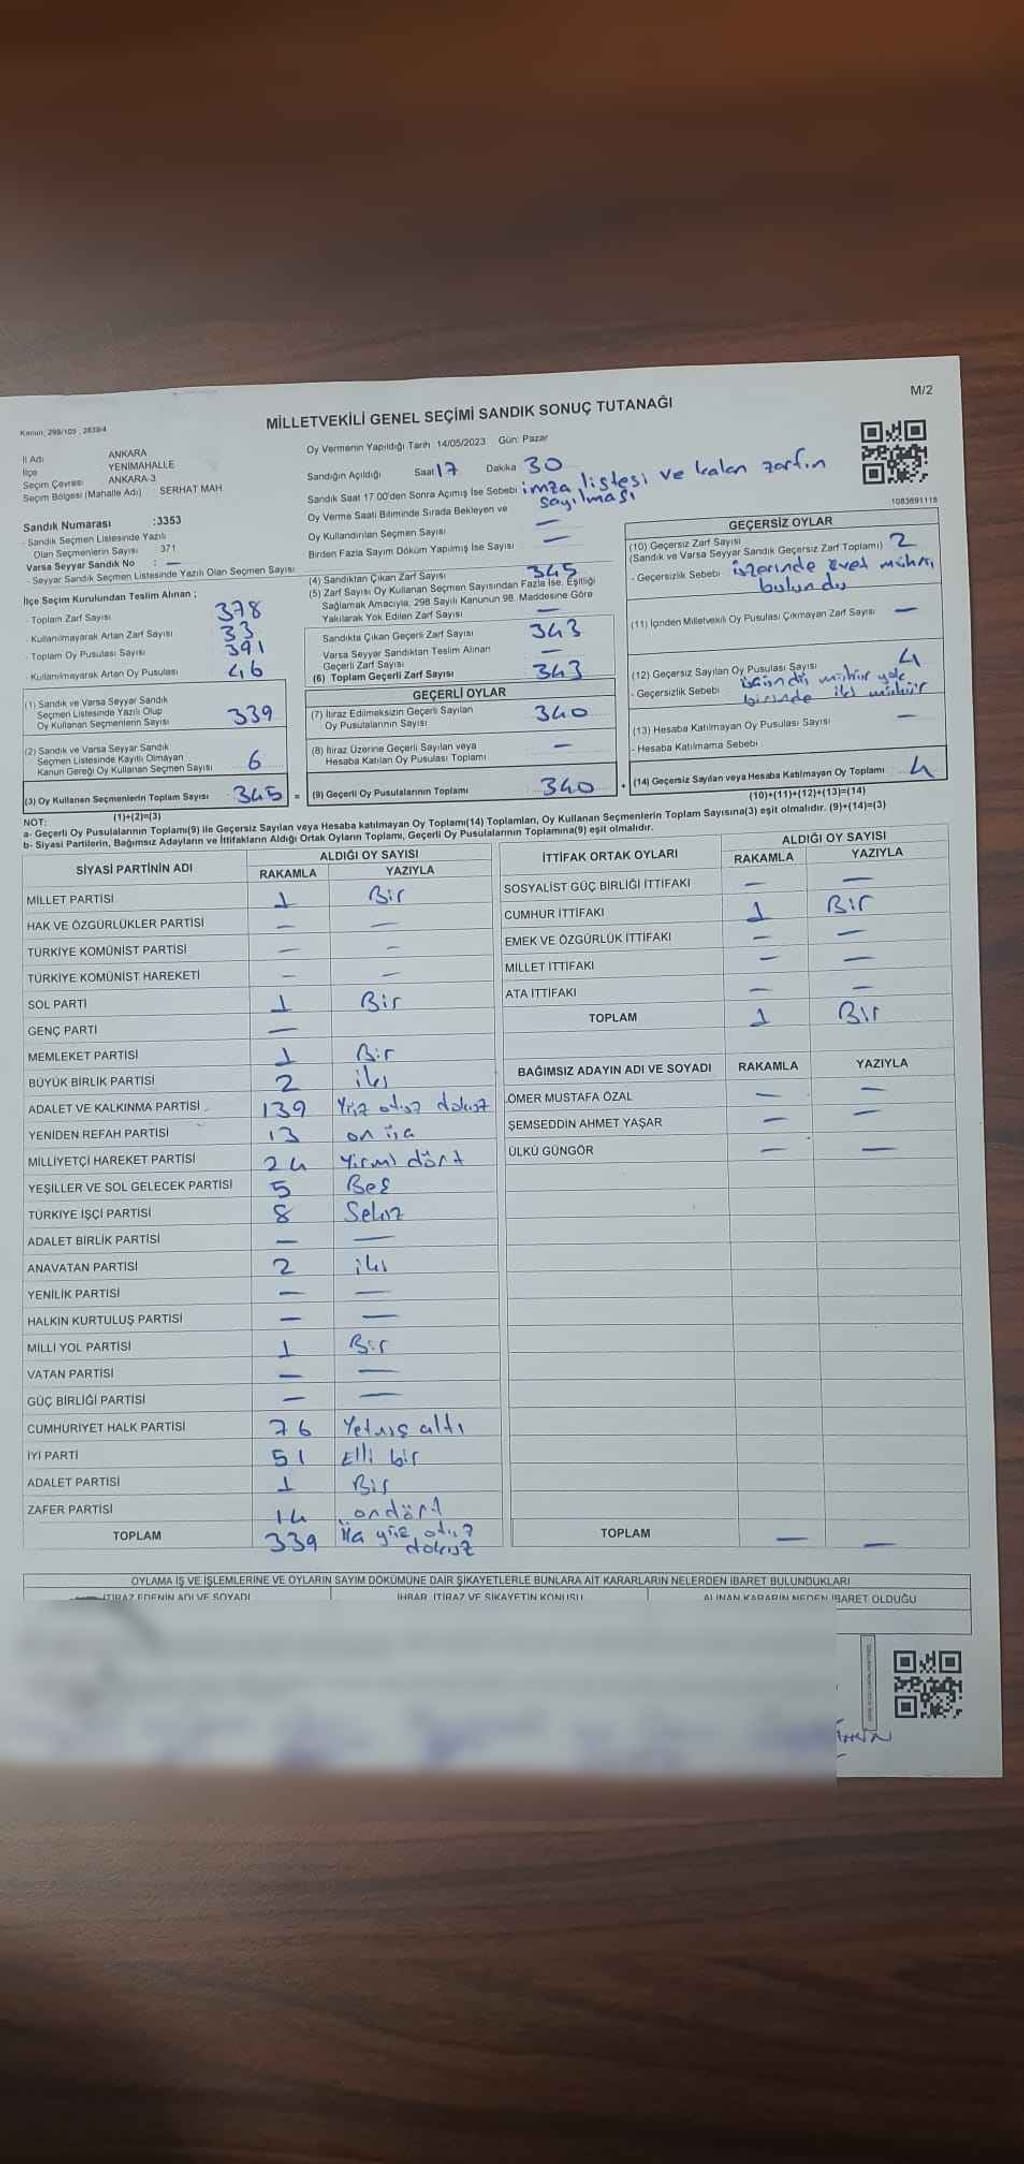 M/2
MİLLETVEKİLİ GENEL SEÇİMİ SANDIK SONUÇ TUTANAĞI
Kanun: 298/105 , 2839/4
İl Adı ANKARA
İlçe YENİMAHALLE
Seçim Çevresi ANKARA-3
Seçim Bölgesi (Mahalle Adı) SERHAT MAH
Oy Vermenin Yapıldığı Tarih 14/05/2023 Gün: Pazar
Sandığın Açıldığı Saat 17 Dakika 30
Sandık Saat 17:00'den Sonra Açımış İse Sebebi imza listesi ve kalan zarfın
sayılması
Oy Verme Saati Bitiminde Sırada Bekleyen ve
Oy Kullandırılan Seçmen Sayısı —
Birden Fazla Sayım Döküm Yapılmış İse Sayısı —
1083691118
Sandık Numarası :3353
- Sandık Seçmen Listesinde Yazılı
Olan Seçmenlerin Sayısı 371
Varsa Seyyar Sandık No : —
- Seyyar Sandık Seçmen Listesinde Yazılı Olan Seçmen Sayısı
İlçe Seçim Kurulundan Teslim Alınan ;
- Toplam Zarf Sayısı 378
- Kullanılmayarak Artan Zarf Sayısı 33
- Toplam Oy Pusulası Sayısı 391
- Kullanılmayarak Artan Oy Pusulası 46
(1) Sandık ve Varsa Seyyar Sandık
Seçmen Listesinde Yazılı Olup
Oy Kullanan Seçmenlerin Sayısı 339
(2) Sandık ve Varsa Seyyar Sandık
Seçmen Listesinde Kayıtlı Olmayan
Kanun Gereği Oy Kullanan Seçmen Sayısı 6
(3) Oy Kullanan Seçmenlerin Toplam Sayısı 345 =
(1)+(2)=(3)
(4) Sandıktan Çıkan Zarf Sayısı 345
(5) Zarf Sayısı Oy Kullanan Seçmen Sayısından Fazla İse, Eşitliği
Sağlamak Amacıyla, 298 Sayılı Kanunun 98. Maddesine Göre
Yakılarak Yok Edilen Zarf Sayısı —
Sandıkta Çıkan Geçerli Zarf Sayısı 343
Varsa Seyyar Sandıktan Teslim Alınan
Geçerli Zarf Sayısı —
(6) Toplam Geçerli Zarf Sayısı 343
GEÇERLİ OYLAR
(7) İtiraz Edilmeksizin Geçerli Sayılan
Oy Pusulalarının Sayısı 340
(8) İtiraz Üzerine Geçerli Sayılan veya
Hesaba Katılan Oy Pusulası Toplamı —
(9) Geçerli Oy Pusulalarının Toplamı 340 +
GEÇERSİZ OYLAR
(10) Geçersiz Zarf Sayısı
(Sandık ve Varsa Seyyar Sandık Geçersiz Zarf Toplamı) 2
- Geçersizlik Sebebi üzerinde evet mührü
bulundu
(11) İçinden Milletvekili Oy Pusulası Çıkmayan Zarf Sayısı —
(12) Geçersiz Sayılan Oy Pusulası Sayısı 4
- Geçersizlik Sebebi mühür yok
birinde iki mühür
(13) Hesaba Katılmayan Oy Pusulası Sayısı —
- Hesaba Katılmama Sebebi
(14) Geçersiz Sayılan veya Hesaba Katılmayan Oy Toplamı 4
(10)+(11)+(12)+(13)=(14)
NOT:
a- Geçerli Oy Pusulalarının Toplamı(9) ile Geçersiz Sayılan veya Hesaba Katılmayan Oy Toplamı(14) Toplamları, Oy Kullanan Seçmenlerin Toplam Sayısına(3) eşit olmalıdır. (9)+(14)=(3)
b- Siyasi Partilerin, Bağımsız Adayların ve İttifakların Aldığı Ortak Oyların Toplamı, Geçerli Oy Pusulalarının Toplamına(9) eşit olmalıdır.
SİYASİ PARTİNİN ADI ALDIĞI OY SAYISI
RAKAMLA YAZIYLA
MİLLET PARTİSİ 1 Bir
HAK VE ÖZGÜRLÜKLER PARTİSİ — —
TÜRKİYE KOMÜNİST PARTİSİ — —
TÜRKİYE KOMÜNİST HAREKETİ — —
SOL PARTİ 1 Bir
GENÇ PARTİ —
MEMLEKET PARTİSİ 1 Bir
BÜYÜK BİRLİK PARTİSİ 2 iki
ADALET VE KALKINMA PARTİSİ 139 Yüz otuz dokuz
YENİDEN REFAH PARTİSİ 13 on üç
MİLLİYETÇİ HAREKET PARTİSİ 24 Yirmi dört
YEŞİLLER VE SOL GELECEK PARTİSİ 5 Beş
TÜRKİYE İŞÇİ PARTİSİ 8 Sekiz
ADALET BİRLİK PARTİSİ — —
ANAVATAN PARTİSİ 2 iki
YENİLİK PARTİSİ — —
HALKIN KURTULUŞ PARTİSİ — —
MİLLİ YOL PARTİSİ 1 Bir
VATAN PARTİSİ — —
GÜÇ BİRLİĞİ PARTİSİ — —
CUMHURİYET HALK PARTİSİ 76 Yetmiş altı
İYİ PARTİ 51 Elli bir
ADALET PARTİSİ 1 Bir
ZAFER PARTİSİ 14 ondört
TOPLAM 339 Üç yüz otuz
dokuz
İTTİFAK ORTAK OYLARI ALDIĞI OY SAYISI
RAKAMLA YAZIYLA
SOSYALİST GÜÇ BİRLİĞİ İTTİFAKI — —
CUMHUR İTTİFAKI 1 Bir
EMEK VE ÖZGÜRLÜK İTTİFAKI — —
MİLLET İTTİFAKI — —
ATA İTTİFAKI — —
TOPLAM 1 Bir
BAĞIMSIZ ADAYIN ADI VE SOYADI RAKAMLA YAZIYLA
ÖMER MUSTAFA ÖZAL — —
ŞEMSEDDİN AHMET YAŞAR — —
ÜLKÜ GÜNGÖR — —
TOPLAM — —
OYLAMA İŞ VE İŞLEMLERİNE VE OYLARIN SAYIM DÖKÜMÜNE DAİR ŞİKAYETLERLE BUNLARA AİT KARARLARIN NELERDEN İBARET BULUNDUKLARI
İTİRAZ EDENİN ADI VE SOYADI İHBAR, İTİRAZ VE ŞİKAYETİN KONUSU ALINAN KARARIN NEDEN İBARET OLDUĞU